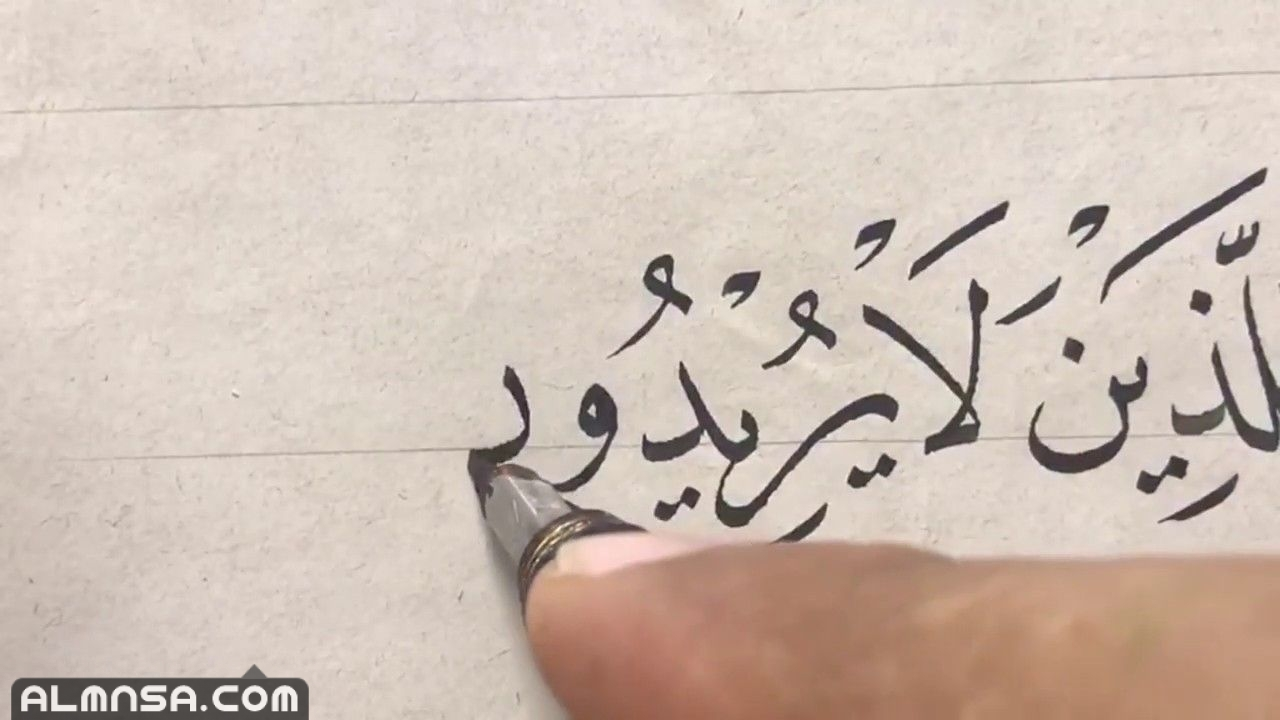 لَّذِيْنَ لَا يُرِيْدُوں
ALMNSA.COM